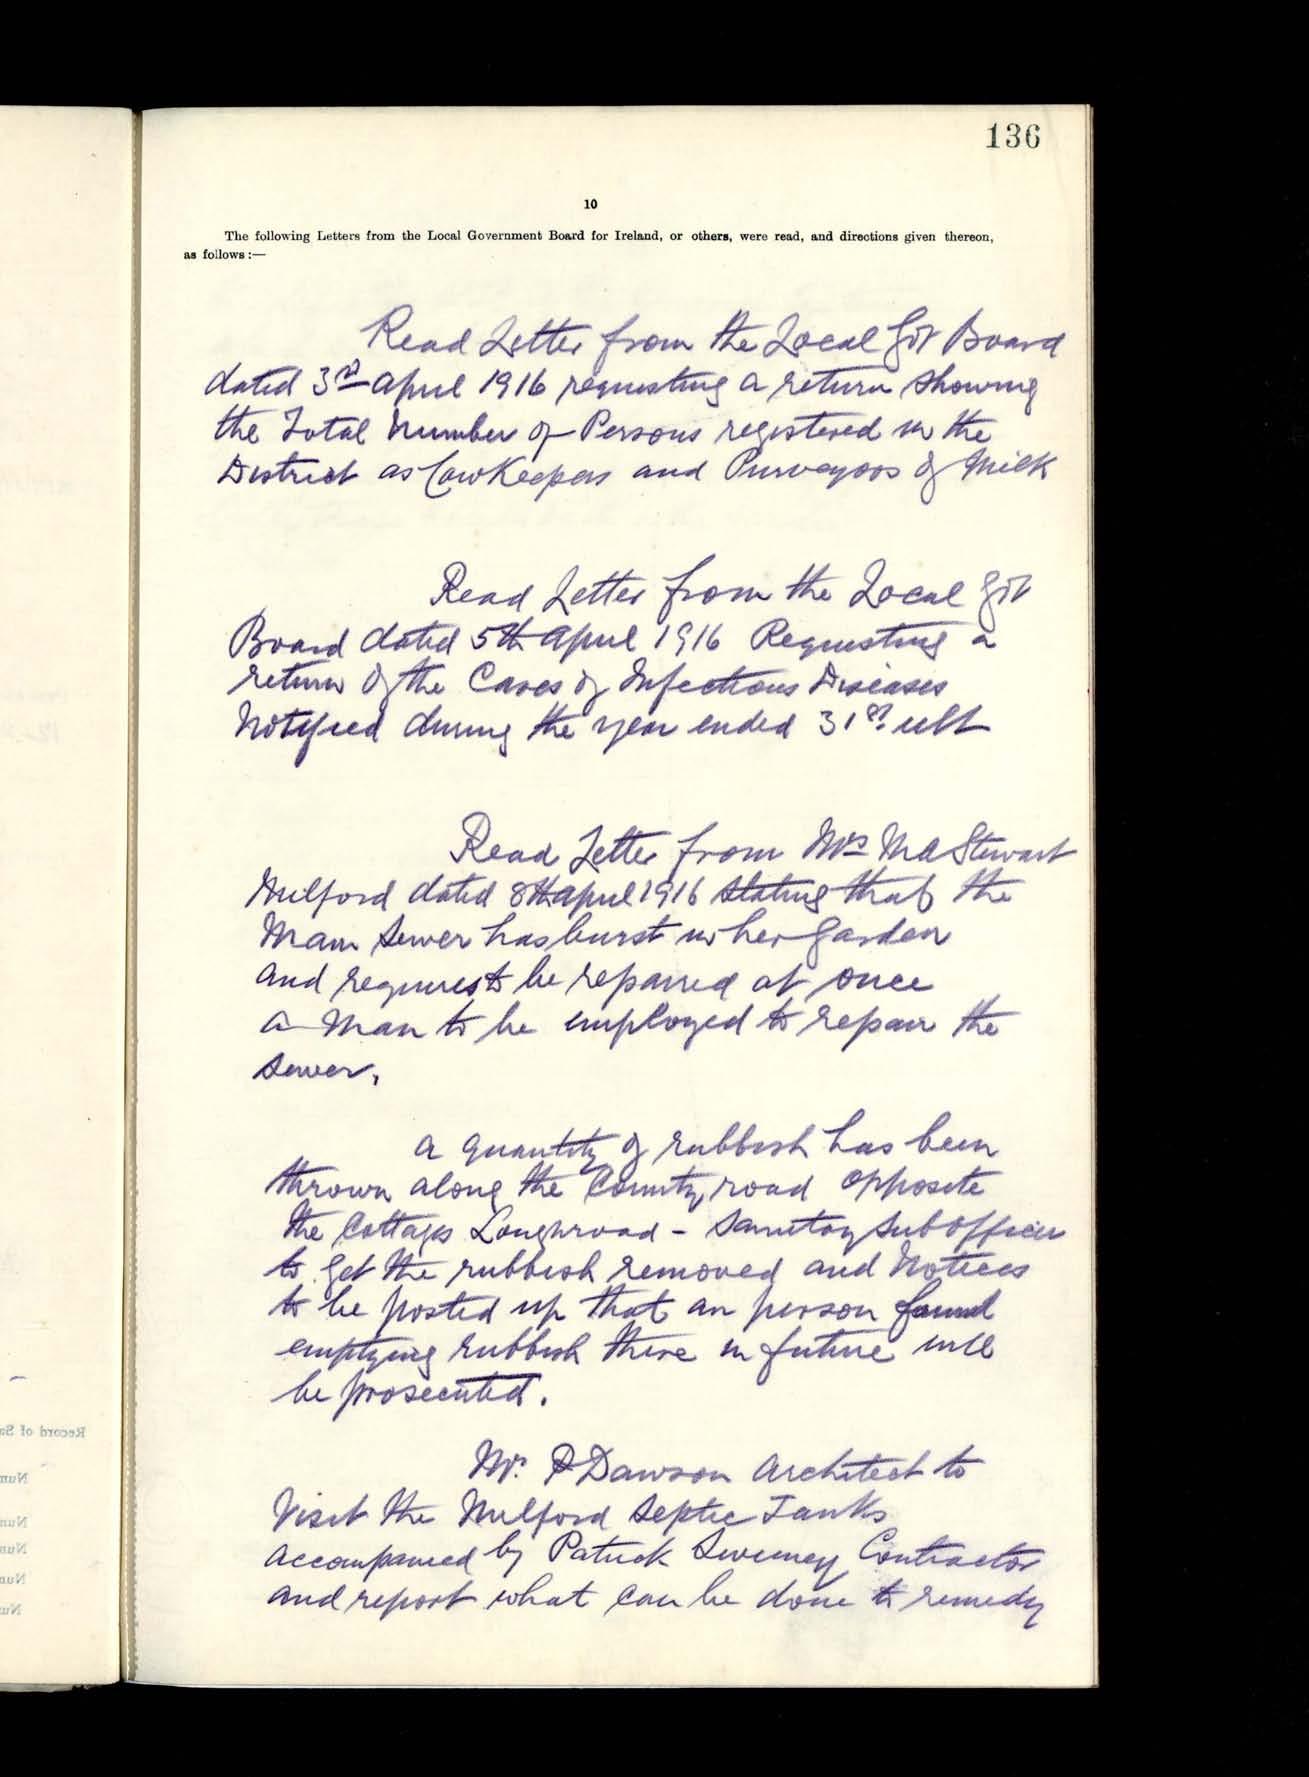 136
10
The following Letters from the Local Government Board for Ireland, or others, were read, and directions given thereon,
as follows:—
Read Letter from the Local Gvt Board
dated 3rd April 1916 requesting a return showing
the Total Number of Persons registered in the
District as CowKeepers and Purveyors of Milk
Read Letter from the Local Gvt
Board dated 5th April 1916 Requesting a
return of the Cases of Infectious Diseases
Notified during the year ended 31st ult
Read Letter from Mrs MA Stewart
Milford dated 8th April 1916 stating that the
Main Sewer has burst in her Garden
and requires to be repaired at once
A Man to be employed to repair the
Sewer.
A quantity of rubbish has been
thrown along the County road opposite
the Cottages Loughroad - Sanitary Sub Officer
to get the rubbish removed and Notices
to be posted up that an person found
emptying rubbish there in future will
be prosecuted.
Mr. Dawson Architect to
Visit the Milford Septic Tanks
accompanied by Patrick Sweeney Contractor
and report what can be done to remedy
Record of Sa
Num
Num
Num
Num
Num